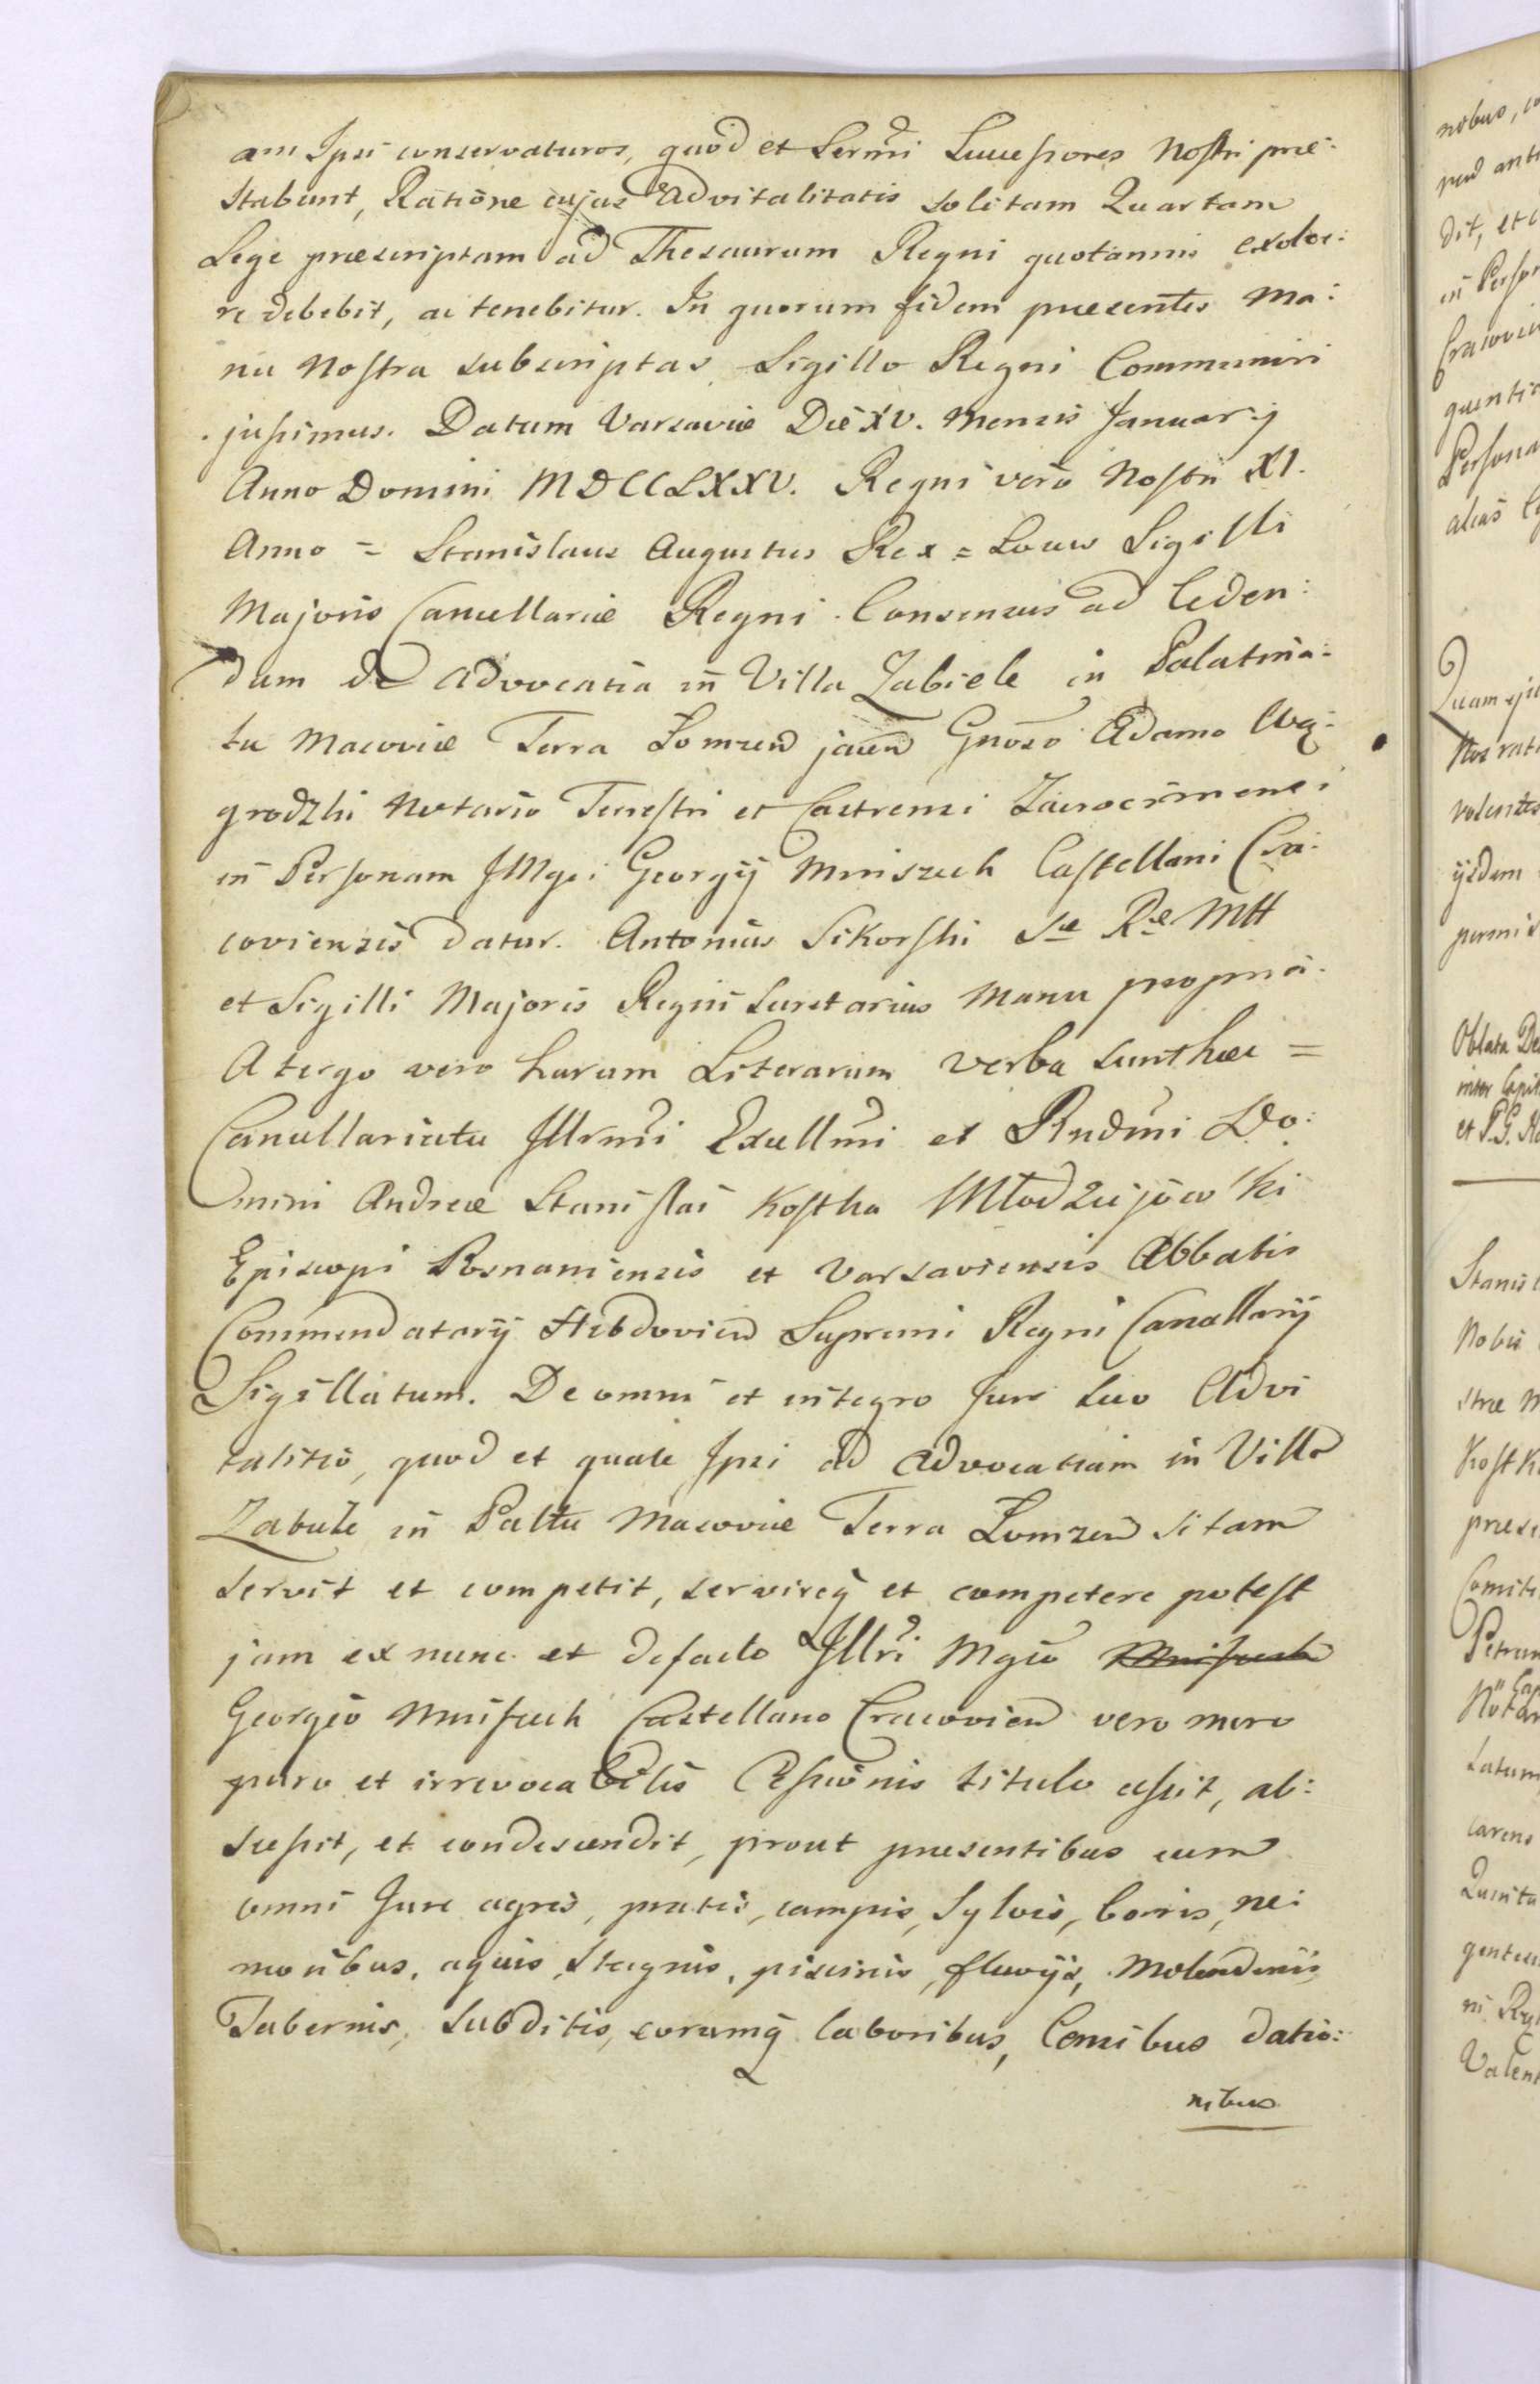 am Ipsi conservaturos, quod et Sermi Successores Nostri præ:
stabunt, Ratione cujus Advitalitatis solitam Quartam
Lege præscriptam ad Thesaurum Regni quotannis exolve:
re debebit, ac tenebitur. In quorum fidem præsentes Ma:
nu Nostra subscriptas Sigillo Regni Communiri
jussimus. Datum Varsaviæ Die XV. Mensis Januarij
Anno Domini MDCCLXXV. Regni vero Nostri XI.
Anno = Stanislaus Augustus Rex = Locus Sigilli
Majoris Cancellariæ Regni. Consensus ad Ceden:
dum de Advocatia in Villa Zabiele in Palatina:
tu Masoviæ Terra Lomzen jacen Gnoso Adamo Wy:
grodzki Notario Terrestri et Castrensi Zacrocimensi
in Personam JMgci Georgij Mniszech Castellani Cra:
coviensis datur. Antonius Sikorski Sæ Ræ Mtt
et Sigilli Majoris Regni Secretarius Manu propria.
A tergo vero harum Literarum verba sunt hæc =
Cancellariatu Jllrmi Excellmi et Rndmi Do:
mini Andreæ Stanislai Kostka Młodziejowski
Episcopi Posnaniensis et Varsaviensis Abbatis
Commendatarij Hebdovien Supremi Regni Cancellarij
Sigillatum. De omni et integro Jure suo Advi
talitio, quod et quale Ipsi ad Advocatiam in Villa
Zabiele in Palttu Masoviæ Terra Lomzen sitam
servit et competit, servireq et competere potest
jam ex nunc et defacto Jllri Mgco Mniszech
Georgio Mniszech Castellano Cracovien vero mero
puro et irrevocabilis Cessionis titulo cessit, ab:
scessit, et condescendit, prout præsentibus cum
omni Jure agris, pratis, campis, Sylvis, borris, ne:
moribus, aquis, stagnis, piscinis, fluvijs, Molendinis
Tabernis, Subditis, eorumq laboribus, Censibus datio:
nibus